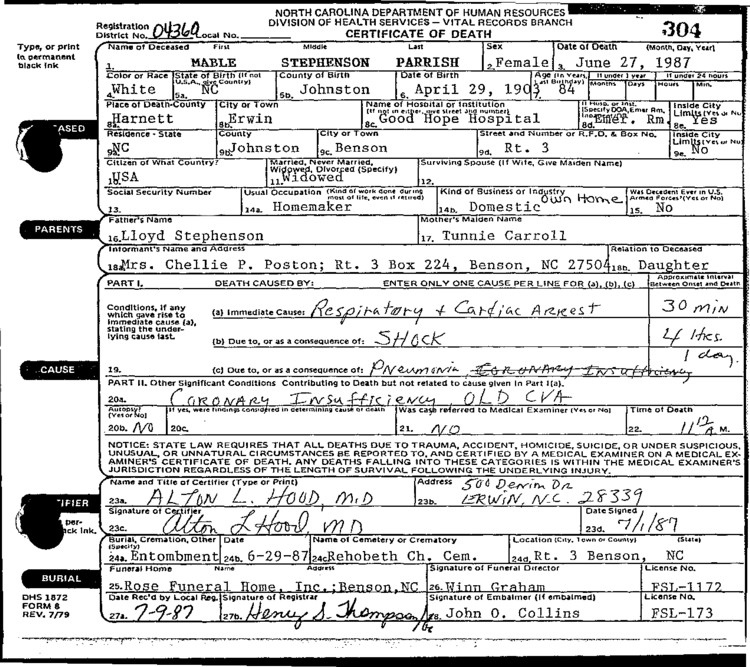 NORTH CAROLINA DEPARTMENT OF HUMAN RESOURCES
DIVISION OF HEALTH SERVICES – VITAL RECORDS BRANCH
CERTIFICATE OF DEATH
304
Registration District No. 04360 Local No.
Type, or print in permanent black ink
Name of Deceased First Middle Last Sex Date of Death (Month, Day, Year)
1. MABLE STEPHENSON PARRISH 2. Female 3. June 27, 1987
Color or Race State of Birth (If not U.S.A., give Country) County of Birth Date of Birth Age (In Years, Last Birthday) If under 1 year If under 24 hours
Months Days Hours Min.
4. White 5a. NC 5b. Johnston 6. April 29, 1903 7. 84
Place of Death-County City or Town Name of Hospital or Institution (If not in either, give street and number) If Hosp. or Inst. (Specify DOA, Emer Rm, Inpatient) Inside City Limits (Yes or No)
8a. Harnett 8b. Erwin 8c. Good Hope Hospital 8d. Emer. Rm. 8e. Yes
DECEASED
Residence - State County City or Town Street and Number or R.F.D. & Box No. Inside City Limits (Yes or No)
9a. NC 9b. Johnston 9c. Benson 9d. Rt. 3 9e. No
Citizen of What Country? Married, Never Married, Widowed, Divorced (Specify) Surviving Spouse (If Wife, Give Maiden Name)
10. USA 11. Widowed 12.
Social Security Number Usual Occupation (Kind of work done during most of life, even if retired) Kind of Business or Industry Was Decedent Ever in U.S. Armed Forces? (Yes or No)
13. 14a. Homemaker 14b. Domestic Own Home 15. No
PARENTS
Father's Name Mother's Maiden Name
16. Lloyd Stephenson 17. Tunnie Carroll
Informant's Name and Address Relation to Deceased
18a. Mrs. Chellie P. Poston; Rt. 3 Box 224, Benson, NC 27504 18b. Daughter
PART I. DEATH CAUSED BY: ENTER ONLY ONE CAUSE PER LINE FOR (a), (b), (c) Approximate Interval Between Onset and Death
Conditions, if any which gave rise to immediate cause (a), stating the underlying cause last.
(a) Immediate Cause: Respiratory + Cardiac Arrest 30 min
(b) Due to, or as a consequence of: SHOCK 4 Hrs.
CAUSE
19. (c) Due to, or as a consequence of: Pneumonia, Coronary Insufficiency 1 day.
PART II. Other Significant Conditions Contributing to Death but not related to cause given in Part I(a).
20a. Coronary Insufficiency, OLD CVA
Autopsy? (Yes or No) If yes, were findings considered in determining cause of death Was case referred to Medical Examiner (Yes or No) Time of Death
20b. NO 20c. 21. NO 22. 11 12 A M.
NOTICE: STATE LAW REQUIRES THAT ALL DEATHS DUE TO TRAUMA, ACCIDENT, HOMICIDE, SUICIDE, OR UNDER SUSPICIOUS,
UNUSUAL, OR UNNATURAL CIRCUMSTANCES BE REPORTED TO, AND CERTIFIED BY A MEDICAL EXAMINER ON A MEDICAL EX-
AMINER'S CERTIFICATE OF DEATH. ANY DEATHS FALLING INTO THESE CATEGORIES IS WITHIN THE MEDICAL EXAMINER'S
JURISDICTION REGARDLESS OF THE LENGTH OF SURVIVAL FOLLOWING THE UNDERLYING INJURY.
Name and Title of Certifier (Type or Print) Address 500 Denim Dr
23a. ALTON L. HOOD, M.D 23b. ERWIN, N.C. 28339
Signature of Certifier Date Signed
23c. Alton L Hood, MD 23d. 7/1/87
Burial, Cremation, Other (Specify) Date Name of Cemetery or Crematory Location (City, Town or County) (State)
24a. Entombment 24b. 6-29-87 24c. Rehobeth Ch. Cem. 24d. Rt. 3 Benson, NC
BURIAL
Funeral Home Name Address Signature of Funeral Director License No.
25. Rose Funeral Home, Inc.; Benson, NC 26. Winn Graham FSL-1172
DHS 1872
FORM 8
REV. 7/79
Date Rec'd by Local Reg. Signature of Registrar Signature of Embalmer (If embalmed) License No.
27a. 7-9-87 27b. Henry S. Thompson 28. John O. Collins FSL-173